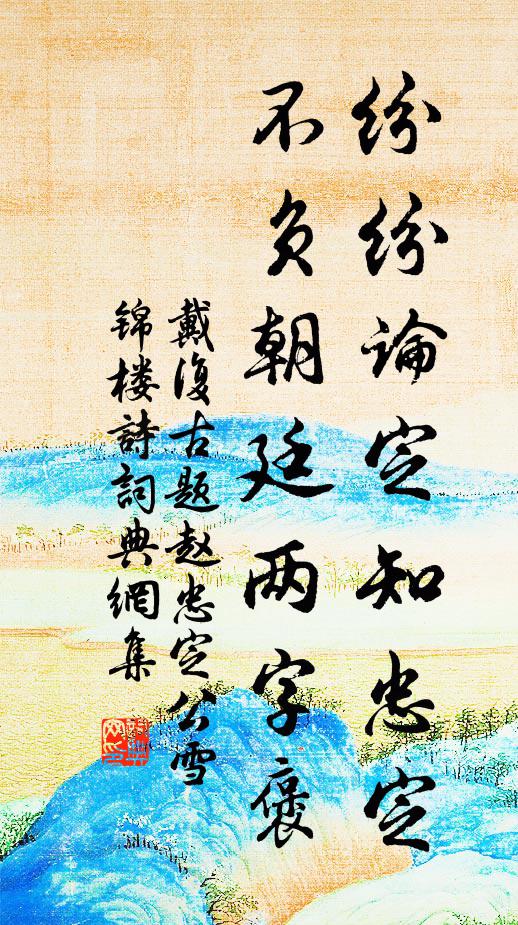 纷纷論定知忠定
不负朝廷两字褒
戴復古题赵忠定公雪
锦楼詩詞典網集